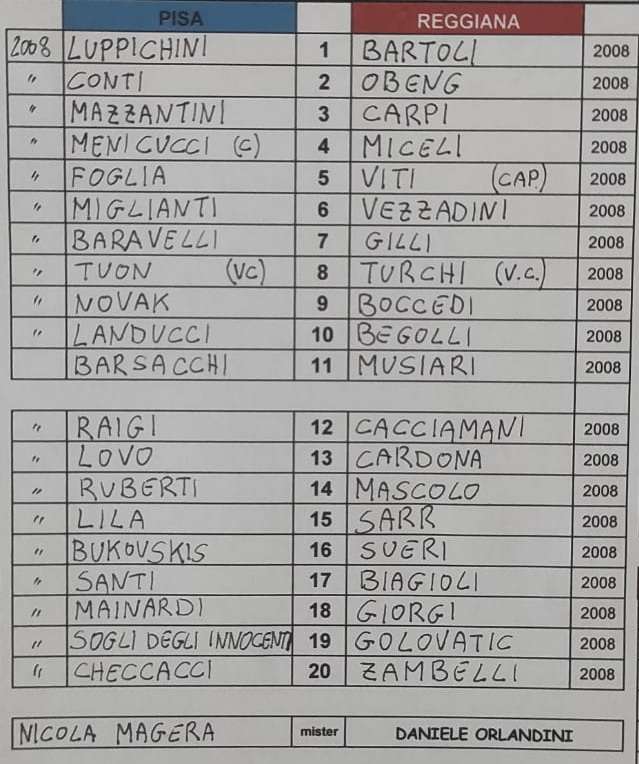 PISA REGGIANA
2008 LUPPICHINI 1 BARTOLI 2008
" CONTI 2 OBENG 2008
" MAZZANTINI 3 CARPI 2008
" MENICUCCI (C) 4 MICELI 2008
" FOGLIA 5 VITI (CAP.) 2008
" MIGLIANTI 6 VEZZADINI 2008
" BARAVELLI 7 GILLI 2008
" TUON (VC) 8 TURCHI (V.C.) 2008
" NOVAK 9 BOCCEDI 2008
" LANDUCCI 10 BEGOLLI 2008
BARSACCHI 11 MUSIARI 2008
" RAIGI 12 CACCIAMANI 2008
" LOVO 13 CARDONA 2008
" RUBERTI 14 MASCOLO 2008
" LILA 15 SARR 2008
" BUKOVSKIS 16 SUERI 2008
" SANTI 17 BIAGIOLI 2008
" MAINARDI 18 GIORGI 2008
" SOGLI DEGLI INNOCENTI 19 GOLOVATIC 2008
" CHECCACCI 20 ZAMBELLI 2008
NICOLA MAGERA mister DANIELE ORLANDINI